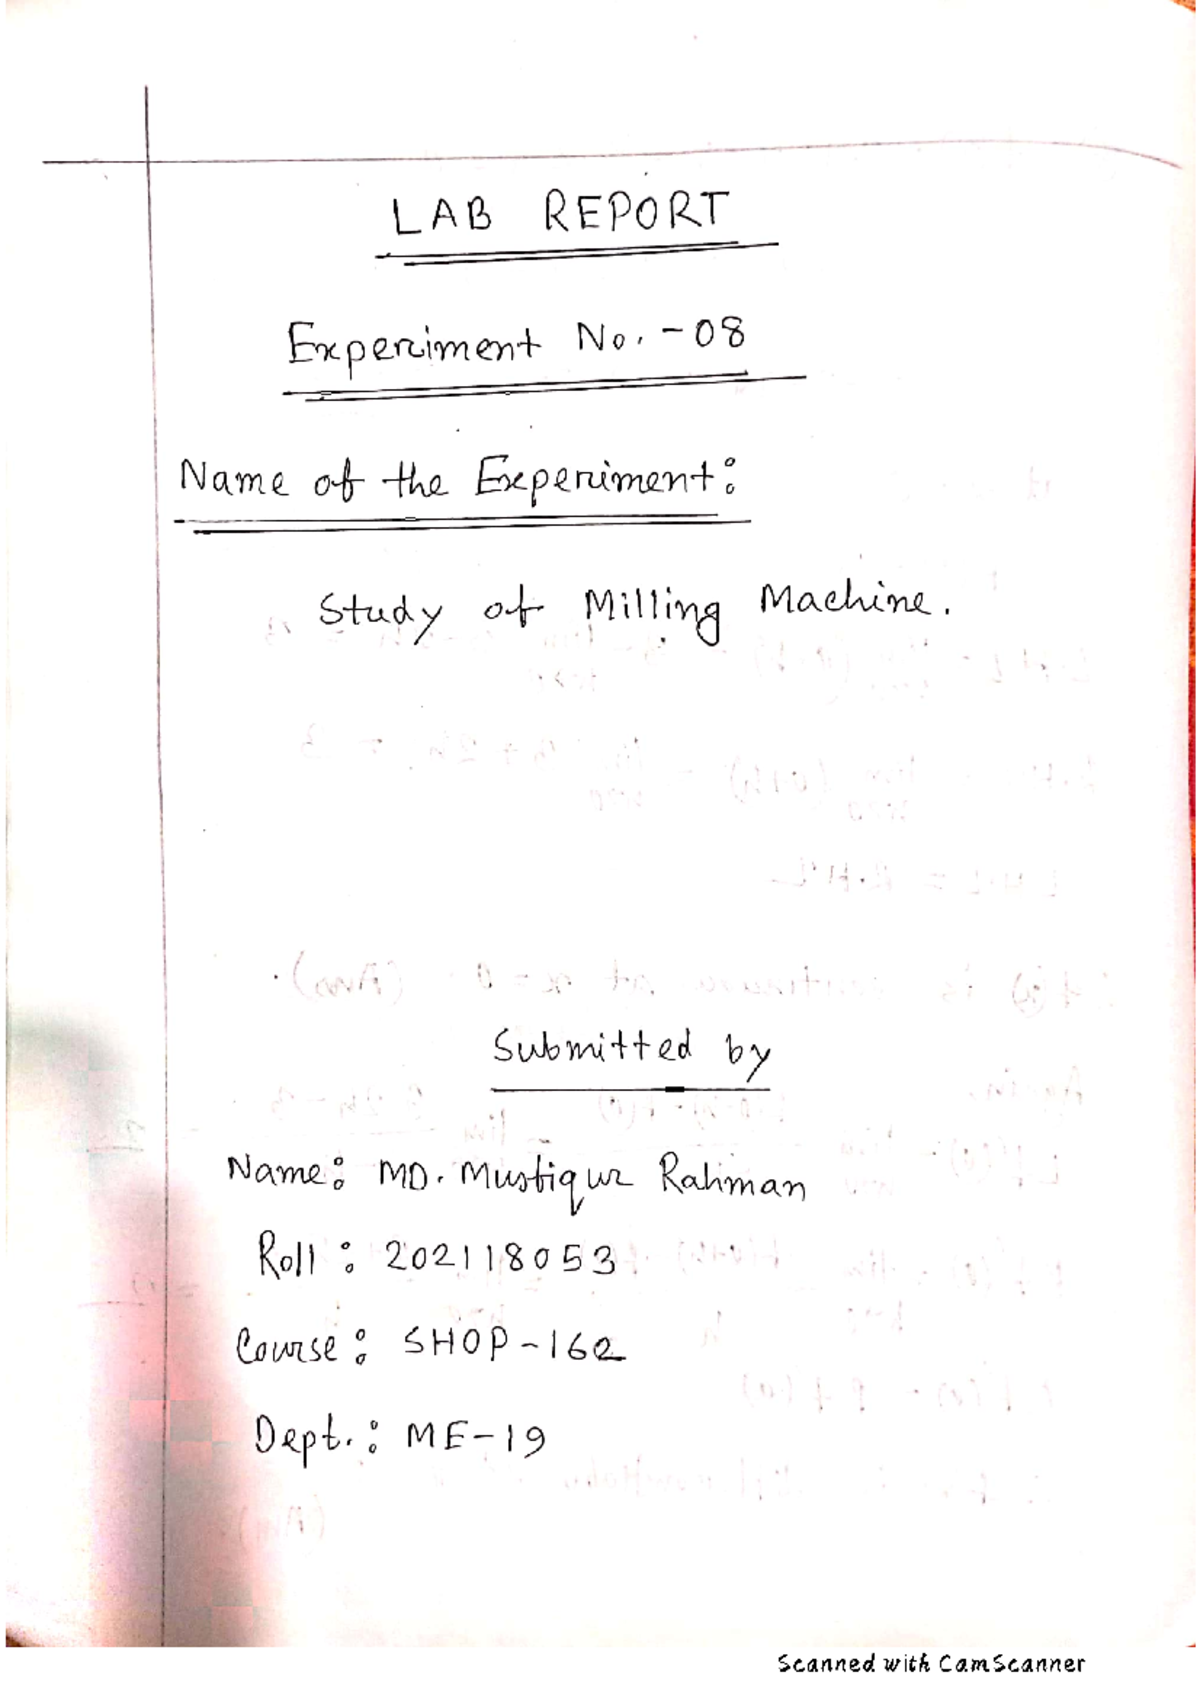 LAB REPORT
Experiment No. -08
Name of the Experiment:
Study of Milling Machine.
Submitted by
Name: MD. Mustiqur Rahman
Roll: 202118053
Course: SHOP-162
Dept.: ME-19
Scanned with CamScanner